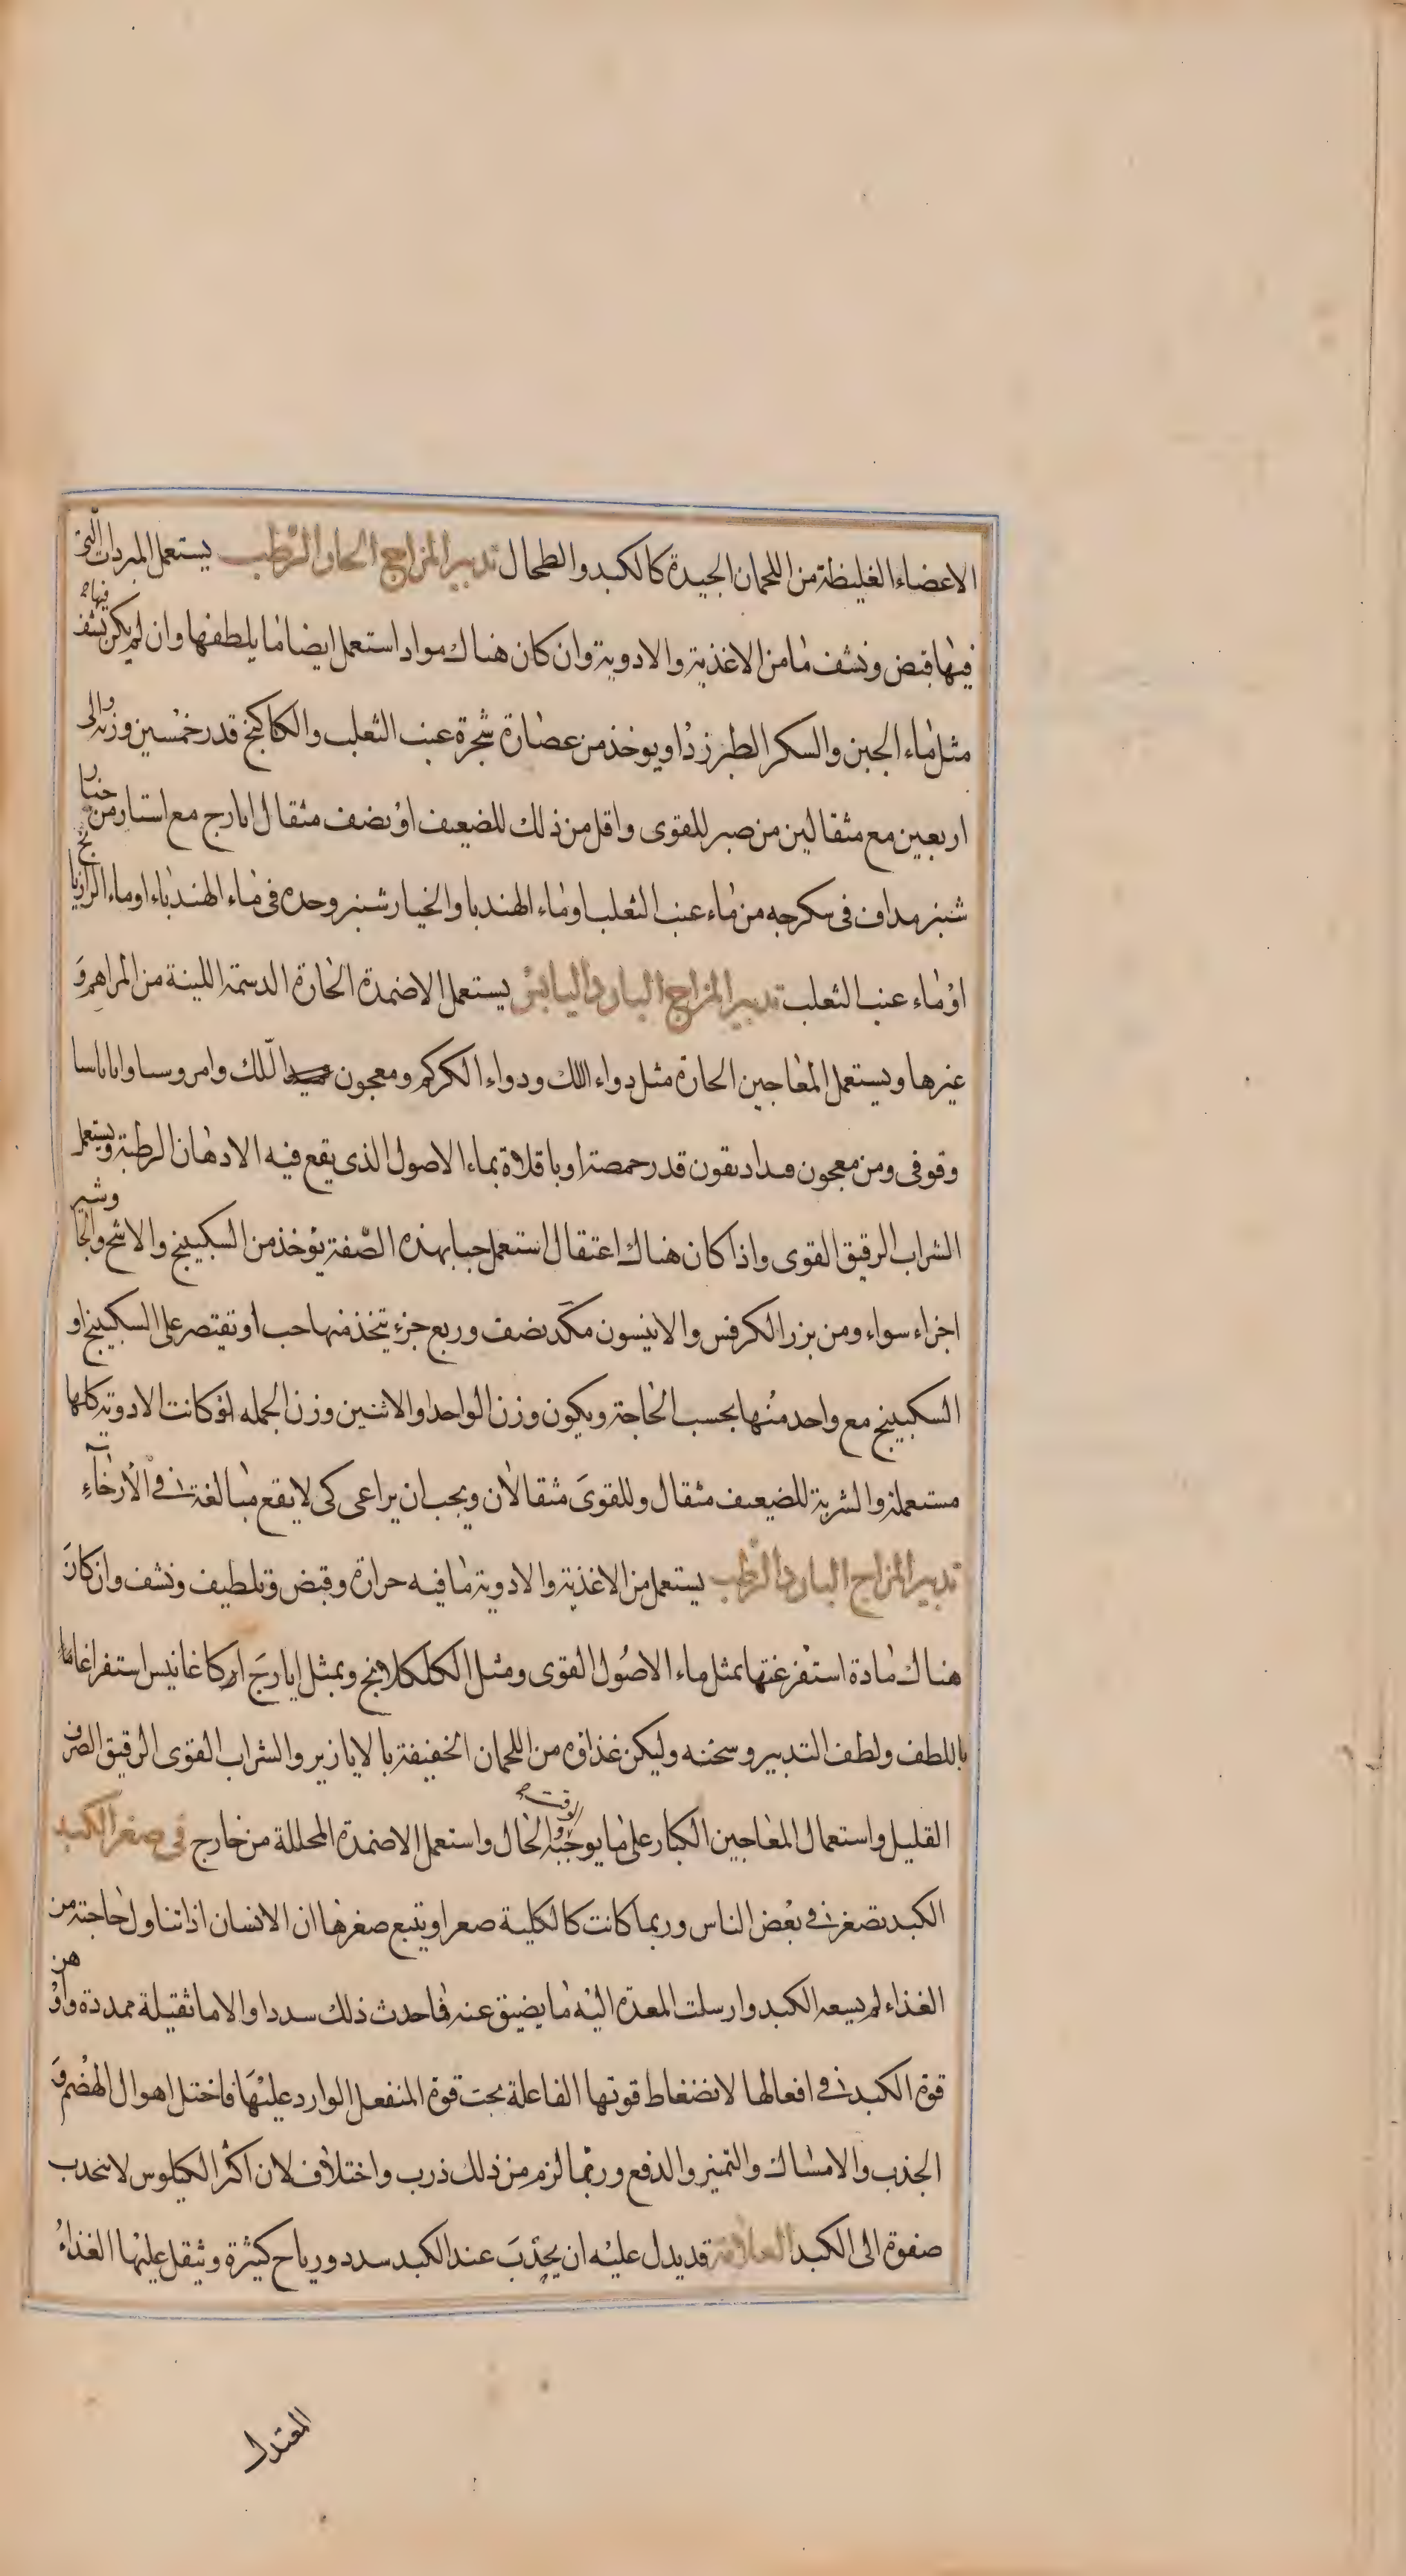 الاعضاء الغليظة من اللحمان الجيدة كالكبد والطحال تدبير المزاج الحار الرطب يستعمل المبردات التى
فيها قبض ونشف ما من الاغذية والادوية وان كان هناك مواد استعمل ايضا ما يلطفها وان لم يكن نشف فيها
مثل ماء الجبن والسكر الطبرزد او يوخذ من عصارة شجرة عنب الثعلب والكاكنج قدر خمسين وزنه والى
اربعين مع مثقالين من صبر للقوى واقل من ذلك للضعيف او نصف مثقال ايارج مع استار من خيار
شنبر مداف فى سكرجه من ماء عنب الثعلب او ماء الهندبا والخيار شنبر وحده فى ماء الهندباء او ماء الرازيانج
او ماء عنب الثعلب تدبير المزاج البارد اليابس يستعمل الاضمدة الحارة الدسمة اللينة من المراهم و
غيرها ويستعمل المعاجين الحارة مثل دواء اللك ودواء الكركم ومعجون اللك وامروسا واناناسا
وقوفى ومن معجون قدر حمصة او باقلاة بماء الاصول الذى يقع فيه الادهان الرطبة ويستعمل
الشراب الرقيق القوى واذا كان هناك اعتقال استعمل حبا بهذه الصفة يؤخذ من السكبينج والاشج والجاوشير
اجزاء سواء ومن بزر الكرفس والانيسون مكد نصف وربع جزء يتخذ منها حب او تقتصر على السكبينج او
السكبينج مع واحد منها بحسب الحاجة ويكون وزن الواحد او الاثنين وزن الجمله لو كانت الادوية كلها
مستعملة والشربة للضعيف مثقال وللقوى مثقالان ويجب ان يراعى كى لا يقع مبالغة فى الارخاء
تدبير المزاج البارد الرطب يستعمل من الاغذية والادوية ما فيه حرارة وقبض وتلطيف ونشف وان كان
هناك مادة استفرغتها بمثل ماء الاصول القوى ومثل الكلكلانج وبمثل ايارج اركاغانيس استفراغا ما
باللطف ولطف التدبير وسخنه وليكن غذاؤه من اللحمان الخفيفة بالابازير والشراب القوى الرقيق الصرف
القليل واستعمال المعاجين الكبار على ما يوجبه الوقت والحال واستعمل الاضمدة المحللة من خارج فى صغر الكبد
الكبد تصغر فى بعض الناس وربما كانت كالكلية صغرا ويتبع صغرها ان الانسان اذا تناول حاجته من
الغذاء لم يسعه الكبد وارسلت المعدة اليه ما يضيق عنه فاحدث ذلك سددا والاما ثقيلة ممددة واوهن
قوة الكبد فى افعالها لانضغاط قوتها الفاعلة تحت قوة المنفعل الوارد عليها فاختل احوال الهضم و
الجذب والامساك والتميز والدفع وربما لزم من ذلك ذرب واختلاف لان اكثر الكيلوس لا ينجذب
صفوة الى الكبد العلامة قد يدل عليه ان يحدث عند الكبد سدد ورياح كثيرة وثقل عليها الغذاء
المعتدل